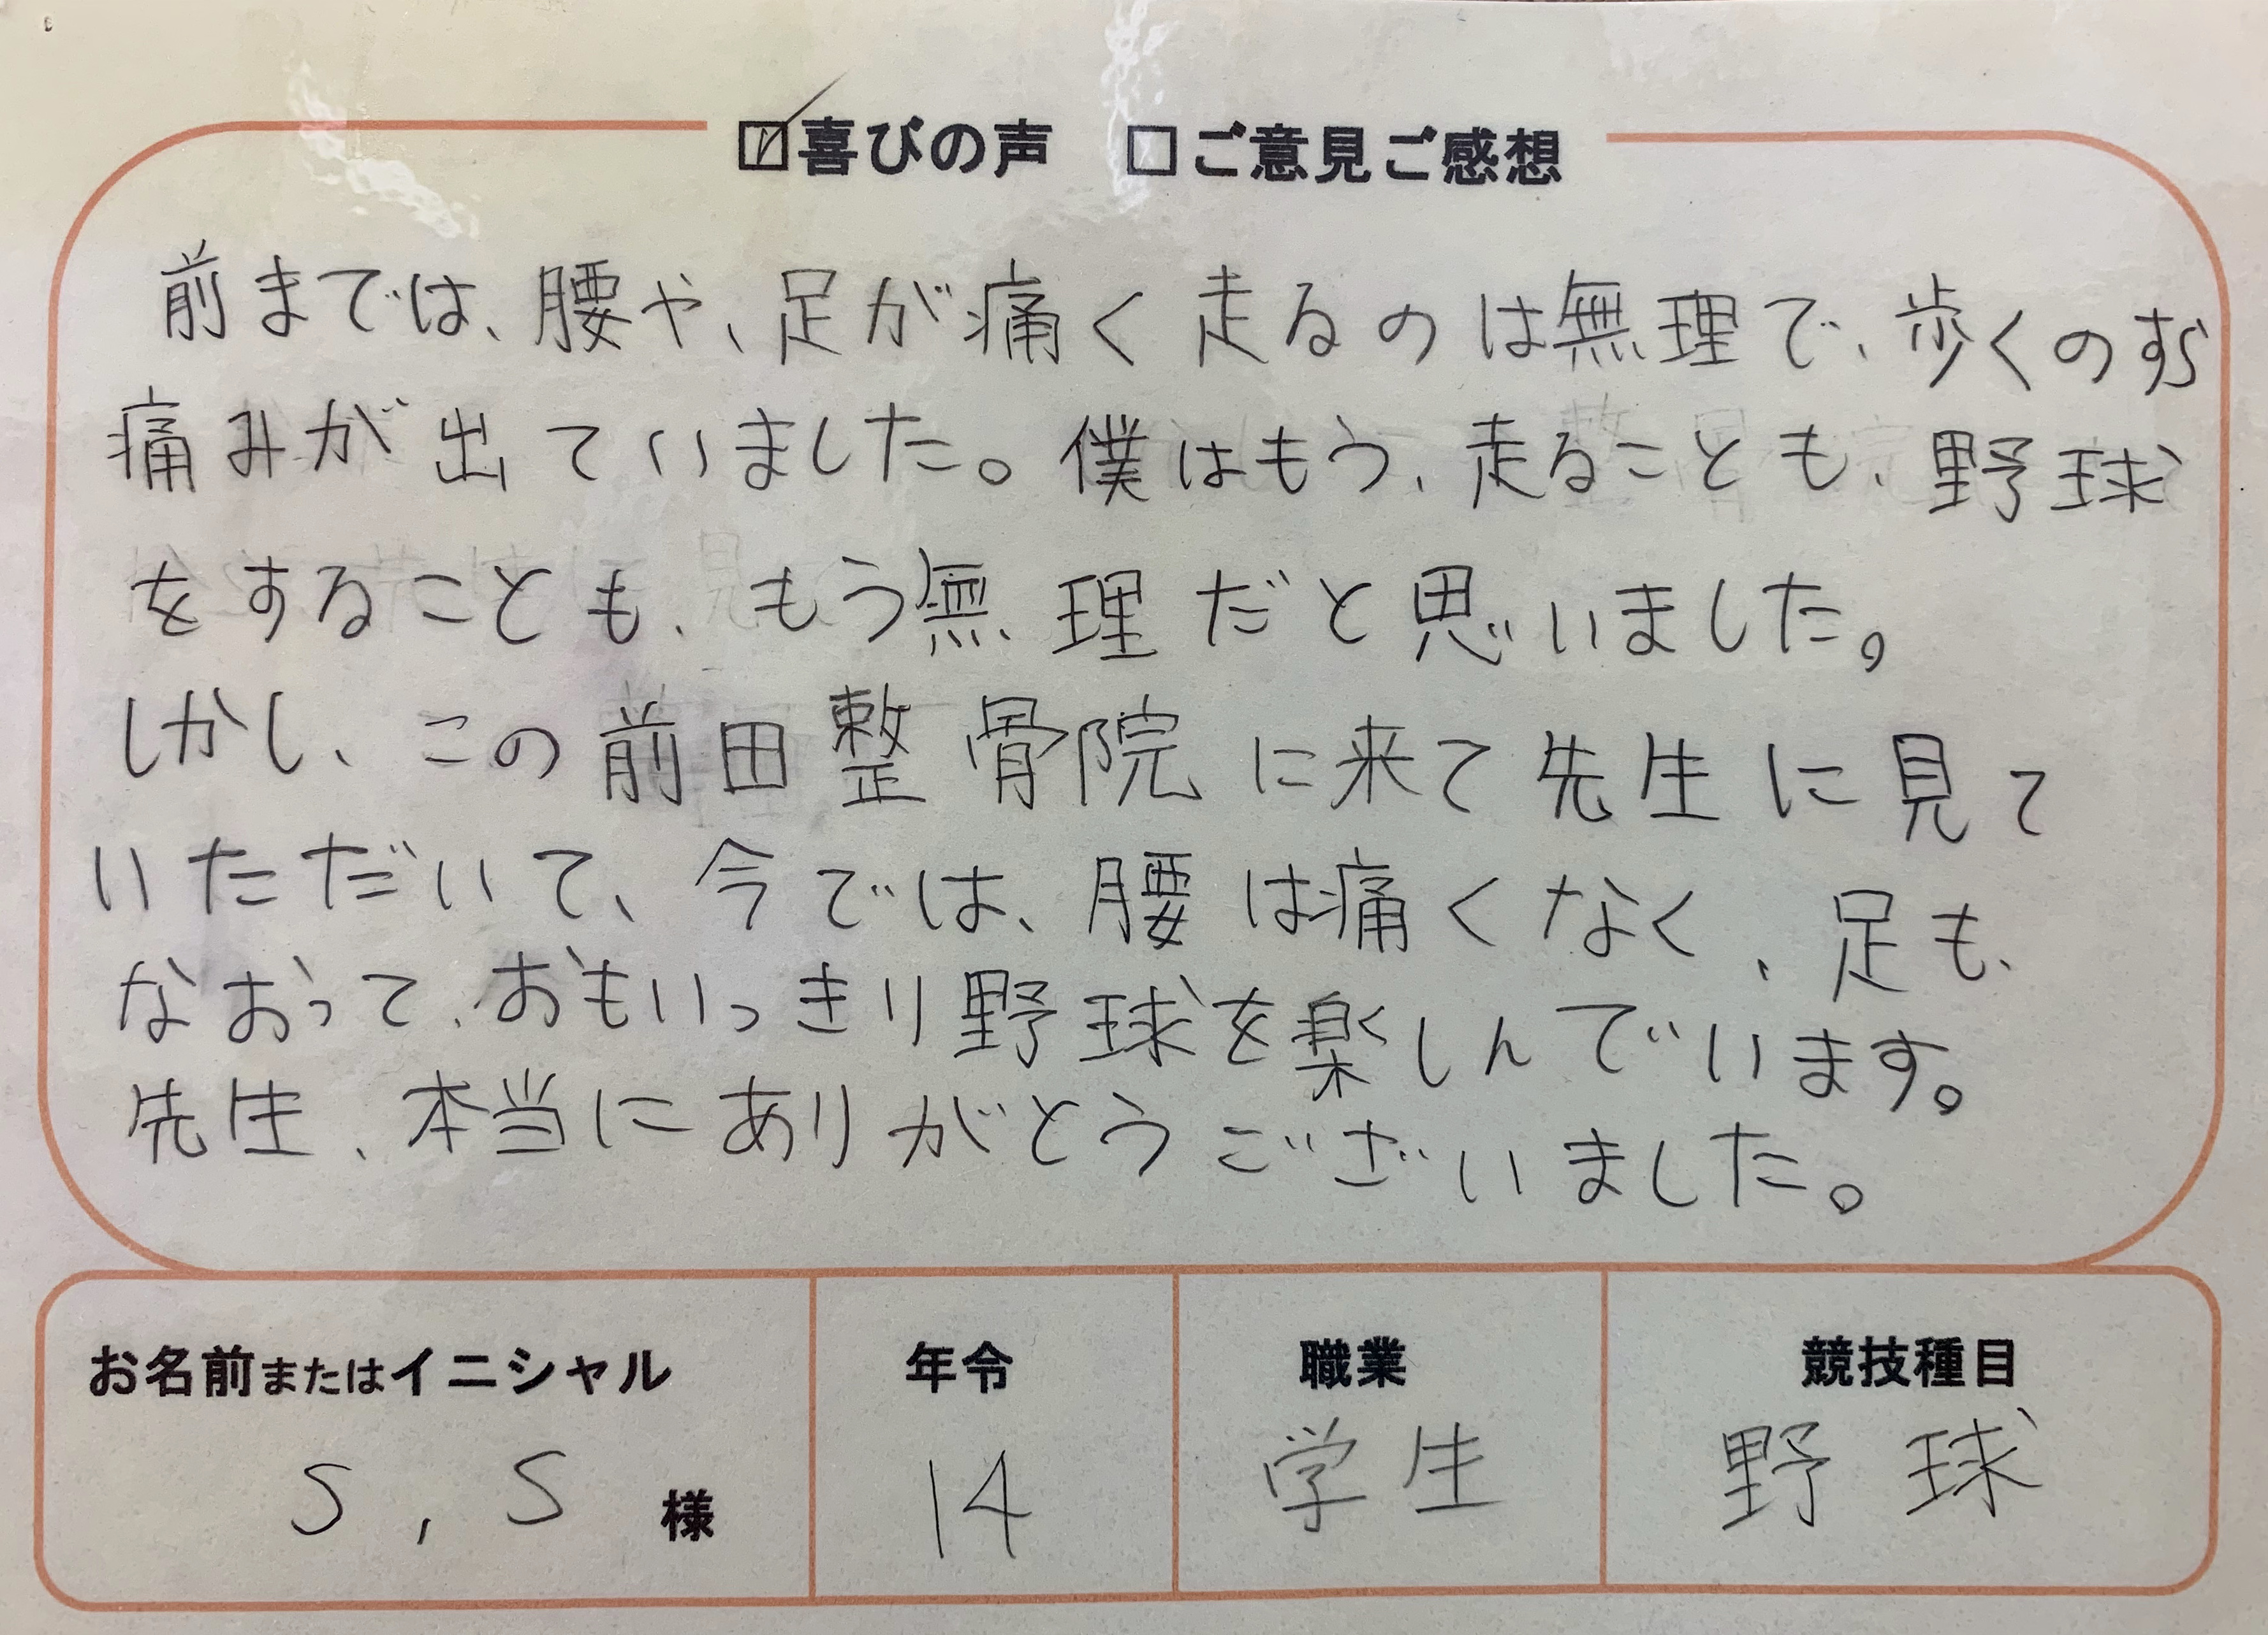 ☑喜びの声 □ご意見ご感想
前までは、腰や、足が痛く走るのは無理で、歩くのすら
痛みが出ていました。僕はもう、走ることも、野球
をすることも、もう無理だと思いました。
しかし、この前田整骨院に来て先生に見て
いただいて、今では、腰は痛くなく、足も、
なおって、おもいっきり野球を楽しんでいます。
先生、本当にありがとうございました。
お名前またはイニシャル 年令 職業 競技種目
S,S 様 14 学生 野球